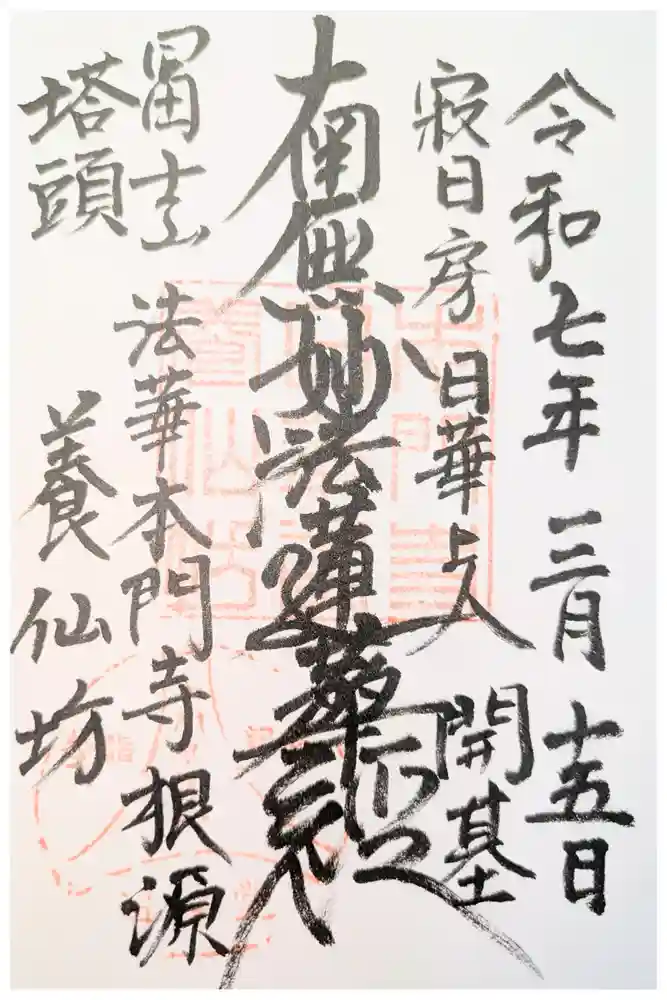 令和七年三月十五日
寂日房日華上人 開基
南無妙法蓮華経
冨士山 法華本門寺根源
塔頭 養仙坊